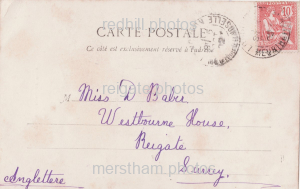 redhill photos
CARTE POSTALE
Ce côté est exclusivement réservé à l'adresse
10
reigate photos
Miss D Baber
Westbourne House,
Reigate
merstham photos
Surrey.
Angleterre